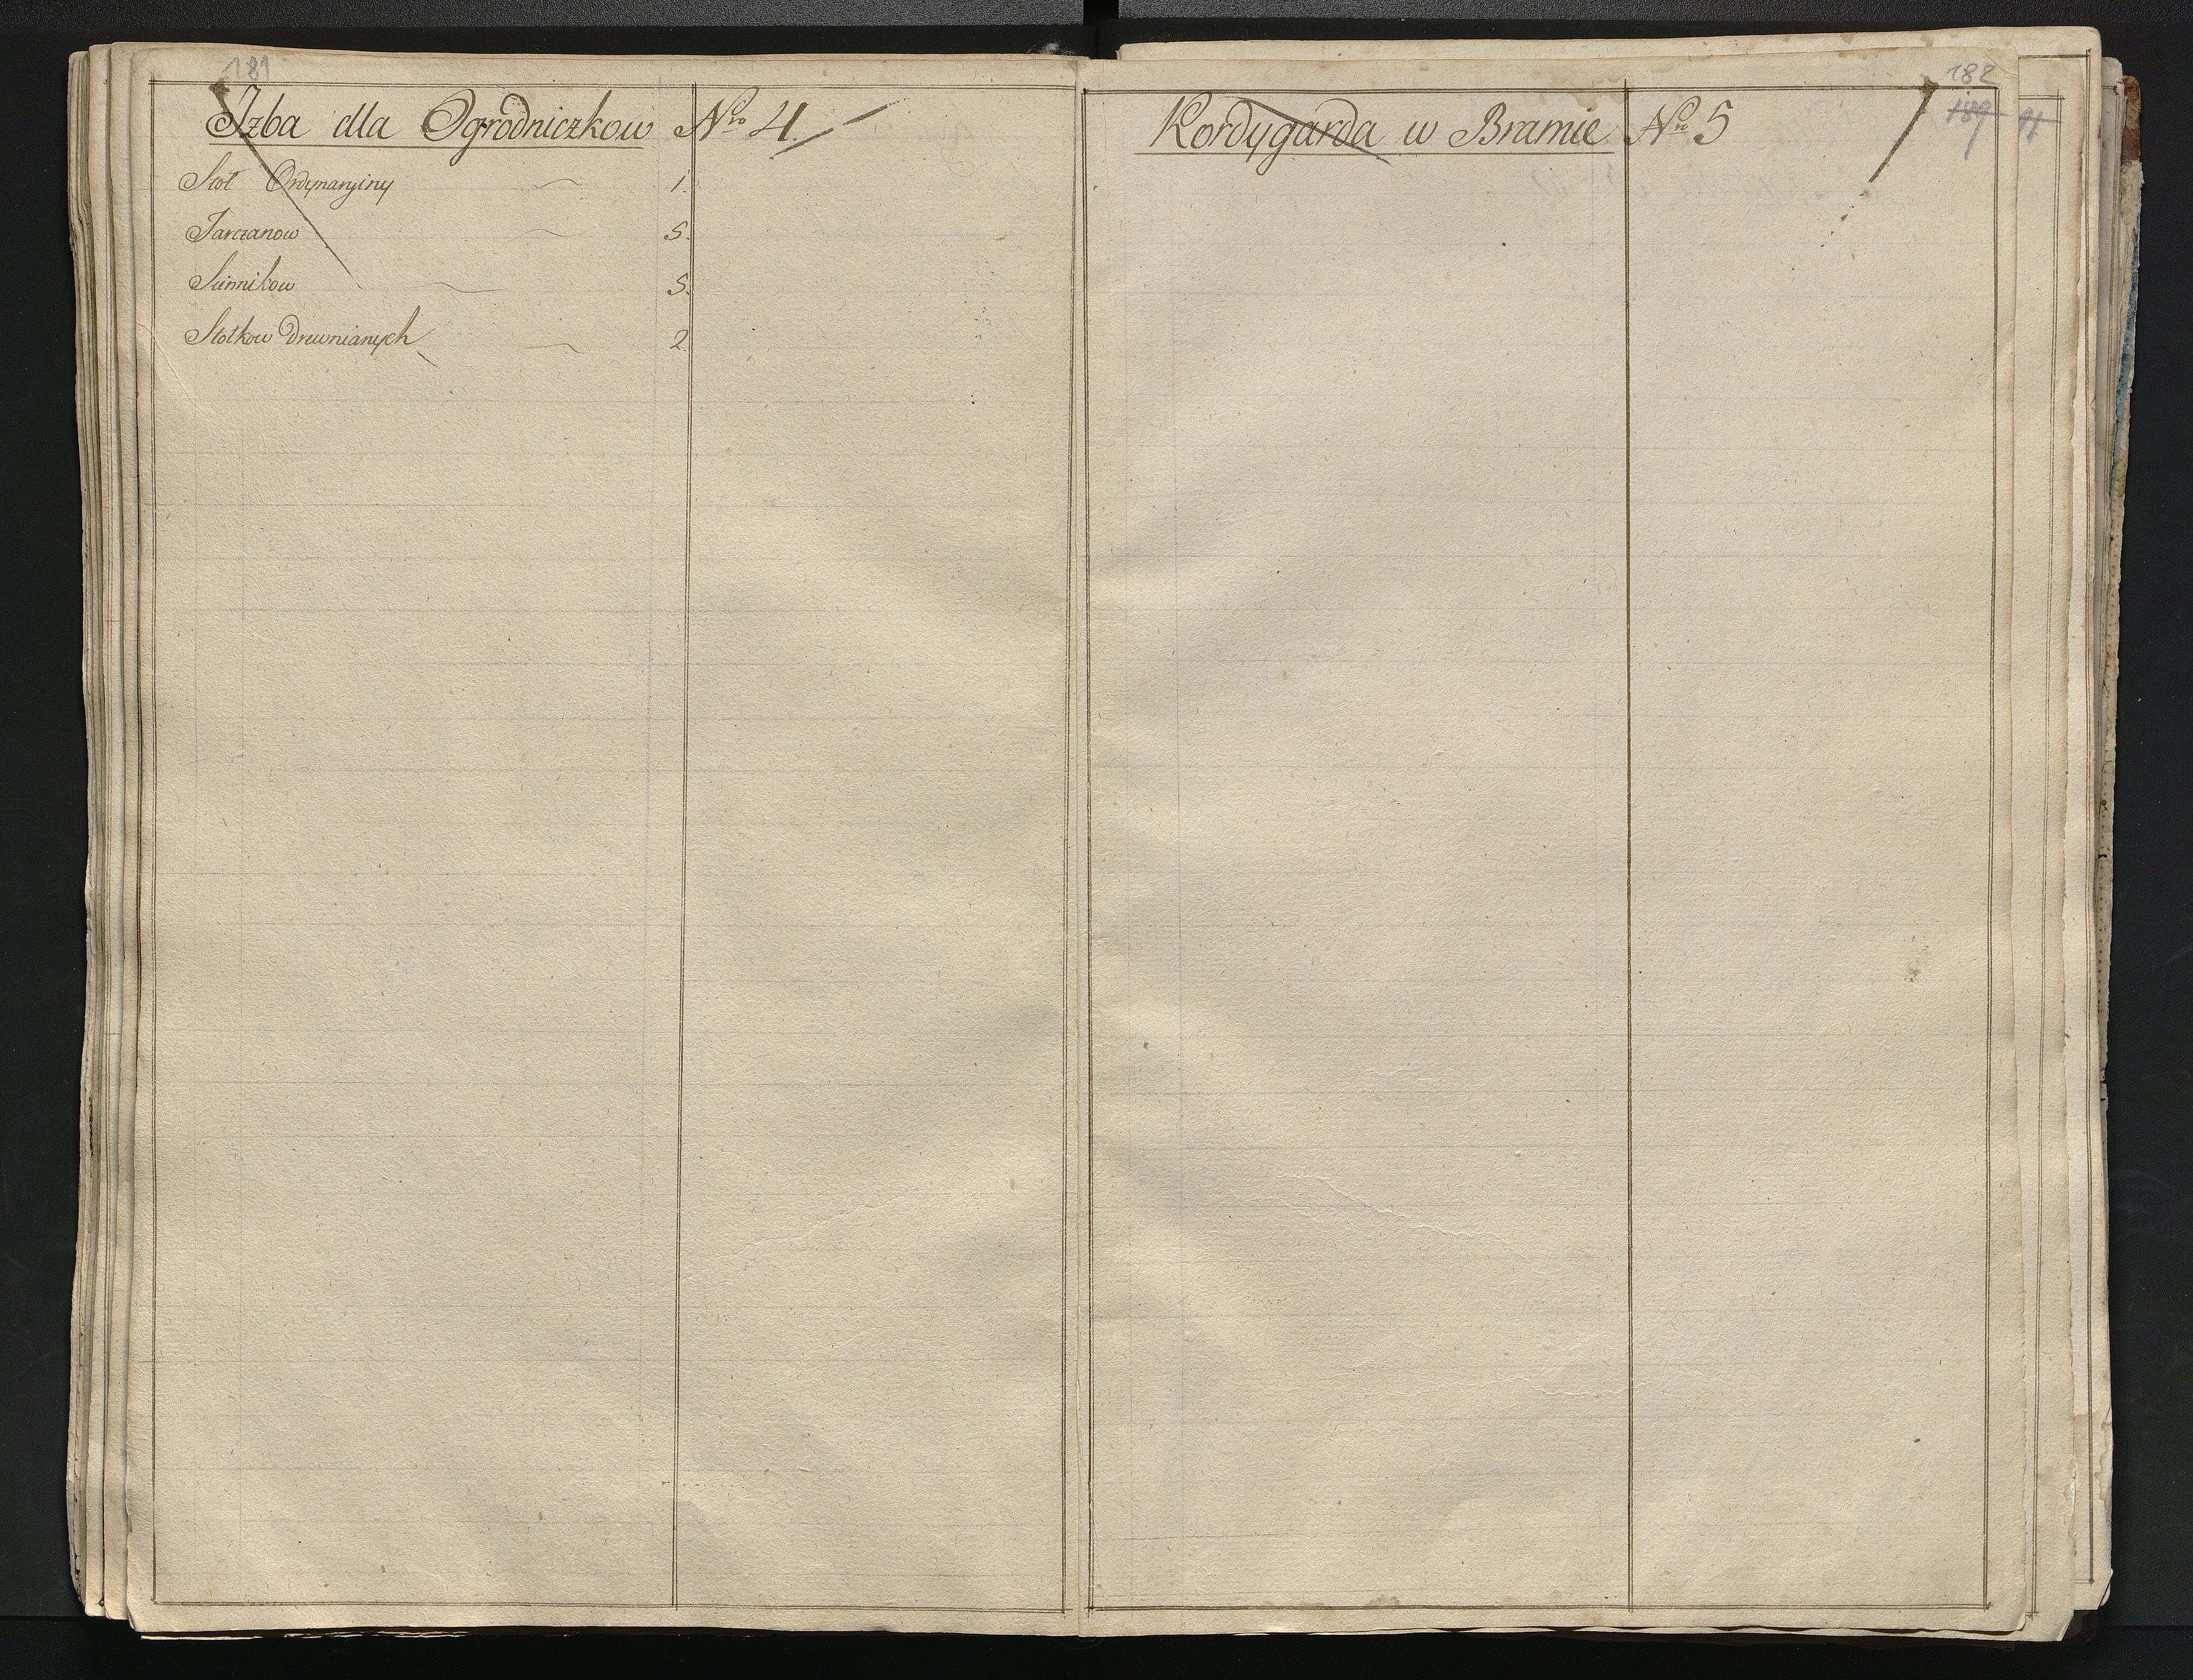 181
Izba dla Ogrodniczkow Nro 4
Stoł Ordynaryiny 1.
Tarczanow 5.
Siennikow 5.
Stołkow Drewnianych 2.
182
189
91
Kordygarda w Bramie Nro 5